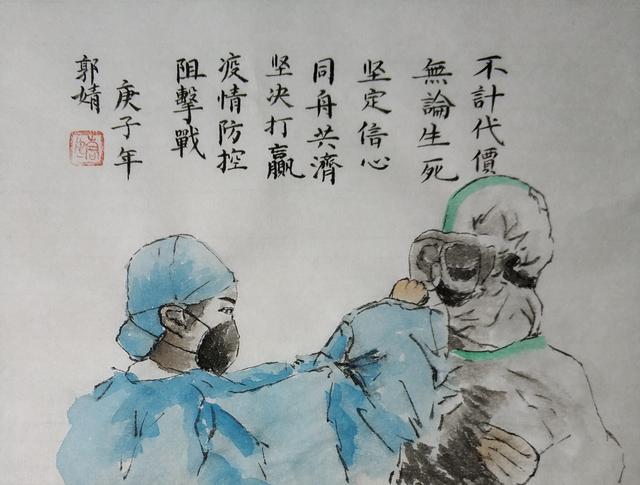 不計代價
無論生死
坚定信心
同舟共濟
坚决打贏
疫情防控
阻擊戰
庚子年
郭婧